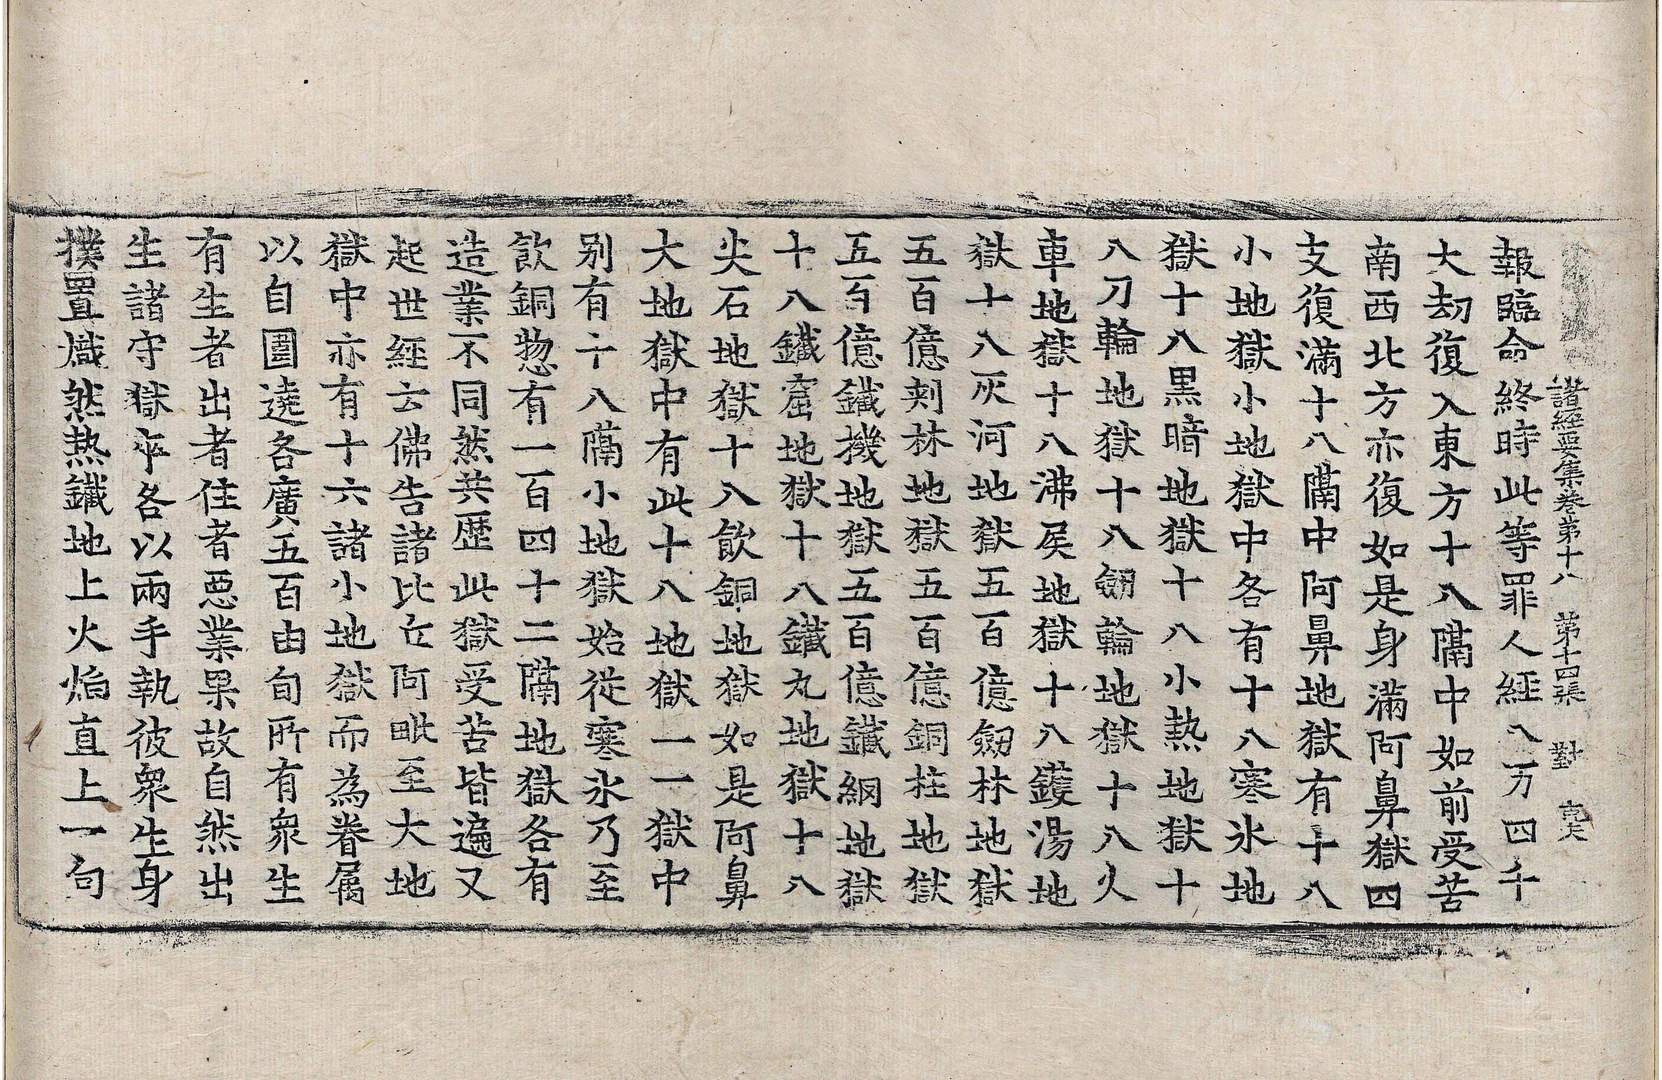 諸經要集卷第十八 第十四張 對
報臨命終時此等罪人經八万四千
大劫復入東方十八隔中如前受苦
南西北方亦復如是身滿阿鼻獄四
支復滿十八隔中阿鼻地獄有十八
小地獄小地獄中各有十八寒氷地
獄十八黒暗地獄十八小熱地獄十
八刀輪地獄十八劒輪地獄十八火
車地獄十八沸屎地獄十八鑊湯地
獄十八灰河地獄五百億劒林地獄
五百億刺林地獄五百億銅柱地獄
五百億鐵機地獄五百億鐵網地獄
十八鐵窟地獄十八鐵丸地獄十八
尖石地獄十八飲銅地獄如是阿鼻
大地獄中有此十八地獄一一獄中
別有十八隔小地獄始從寒氷乃至
飲銅惣有一百四十二隔地獄各有
造業不同然共歷此獄受苦皆遍又
起世經云佛告諸比丘阿毗至大地
獄中亦有十六諸小地獄而為眷屬
以自圍遶各廣五百由旬所有衆生
有生者出者住者惡業果故自然出
生諸守獄卒各以兩手執彼衆生身
撲置熾然熱鐵地上火焰直上一向